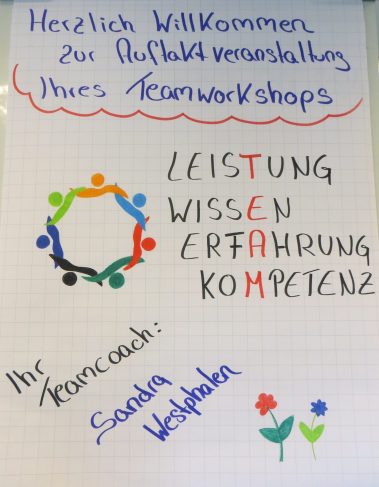 Herzlich Willkommen
zur Auftaktveranstaltung
Ihres Teamworkshops
LEISTUNG
WISSEN
ERFAHRUNG
KOMPETENZ
Ihr
Teamcoach:
Sandra
Westphalen